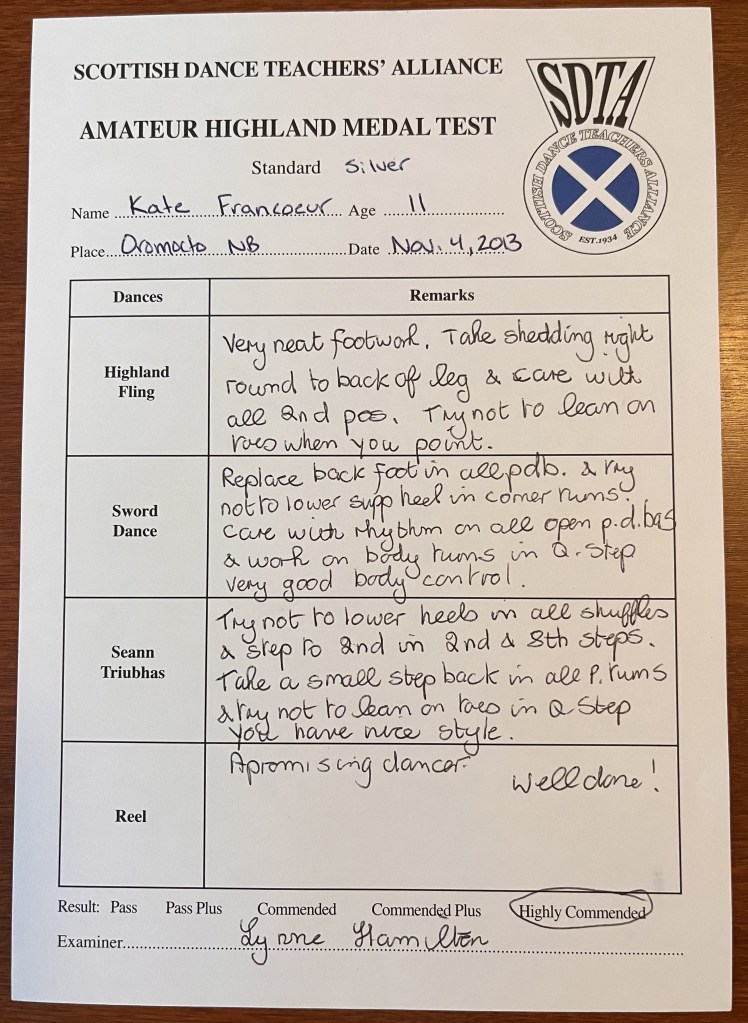 SCOTTISH DANCE TEACHERS' ALLIANCE
SDTA
SCOTTISH DANCE TEACHERS ALLIANCE
EST.1934
AMATEUR HIGHLAND MEDAL TEST
Standard Silver
Name Kate Francoeur Age 11
Place Oromocto NB Date Nov. 4, 2013
Dances Remarks
Highland
Fling
Very neat footwork. Take shedding right
round to back of leg & care with
all 2nd pos. Try not to lean on
toes when you point.
Sword
Dance
Replace back foot in all pdb. & try
not to lower supp heel in corner turns.
Care with rhythm on all open p.d.bas
& work on body turns in Q. Step
very good body control.
Seann
Triubhas
Try not to lower heels in all shuffles
& step to 2nd in 2nd & 8th steps.
Take a small step back in all P. turns
& try not to lean on toes in Q Step
you have nice style.
Reel
A promising dancer.
Well done!
Result: Pass Pass Plus Commended Commended Plus Highly Commended
Examiner Lynne Hamilton